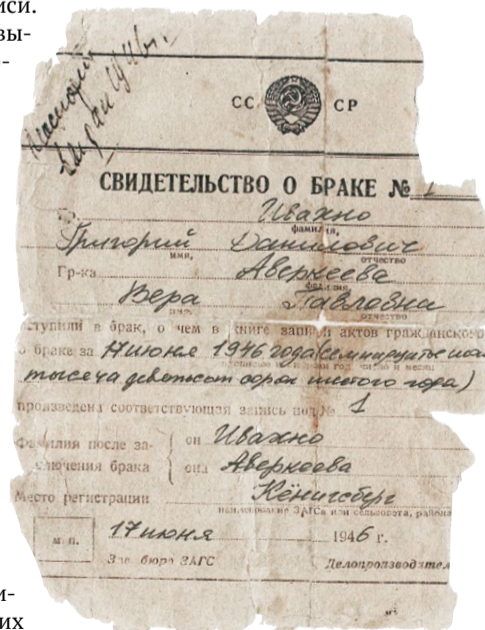 иси.
вы-
СС СР
СВИДЕТЕЛЬСТВО О БРАКЕ № 1
Гр. Ивахно
фамилия,
Григорий Данилович
имя, отчество
Гр-ка Аверкеева
фамилия,
Вера Павловна
отчество
ступили в брак, о чем в книге записи актов гражданского
о брака за 17 июня 1946 года (семнадцатое
тысяча девятьсот сорок шестого года)
произведена соответствующая запись под № 1
Фамилия после за- он Ивахно
ключения брака она Аверкеева
Место регистрации Кёнигсберг
наименование ЗАГСа или сельсовета, района
м. п. 17 июня 1946 г.
Зав. бюро ЗАГС Делопроизводител
и-
их